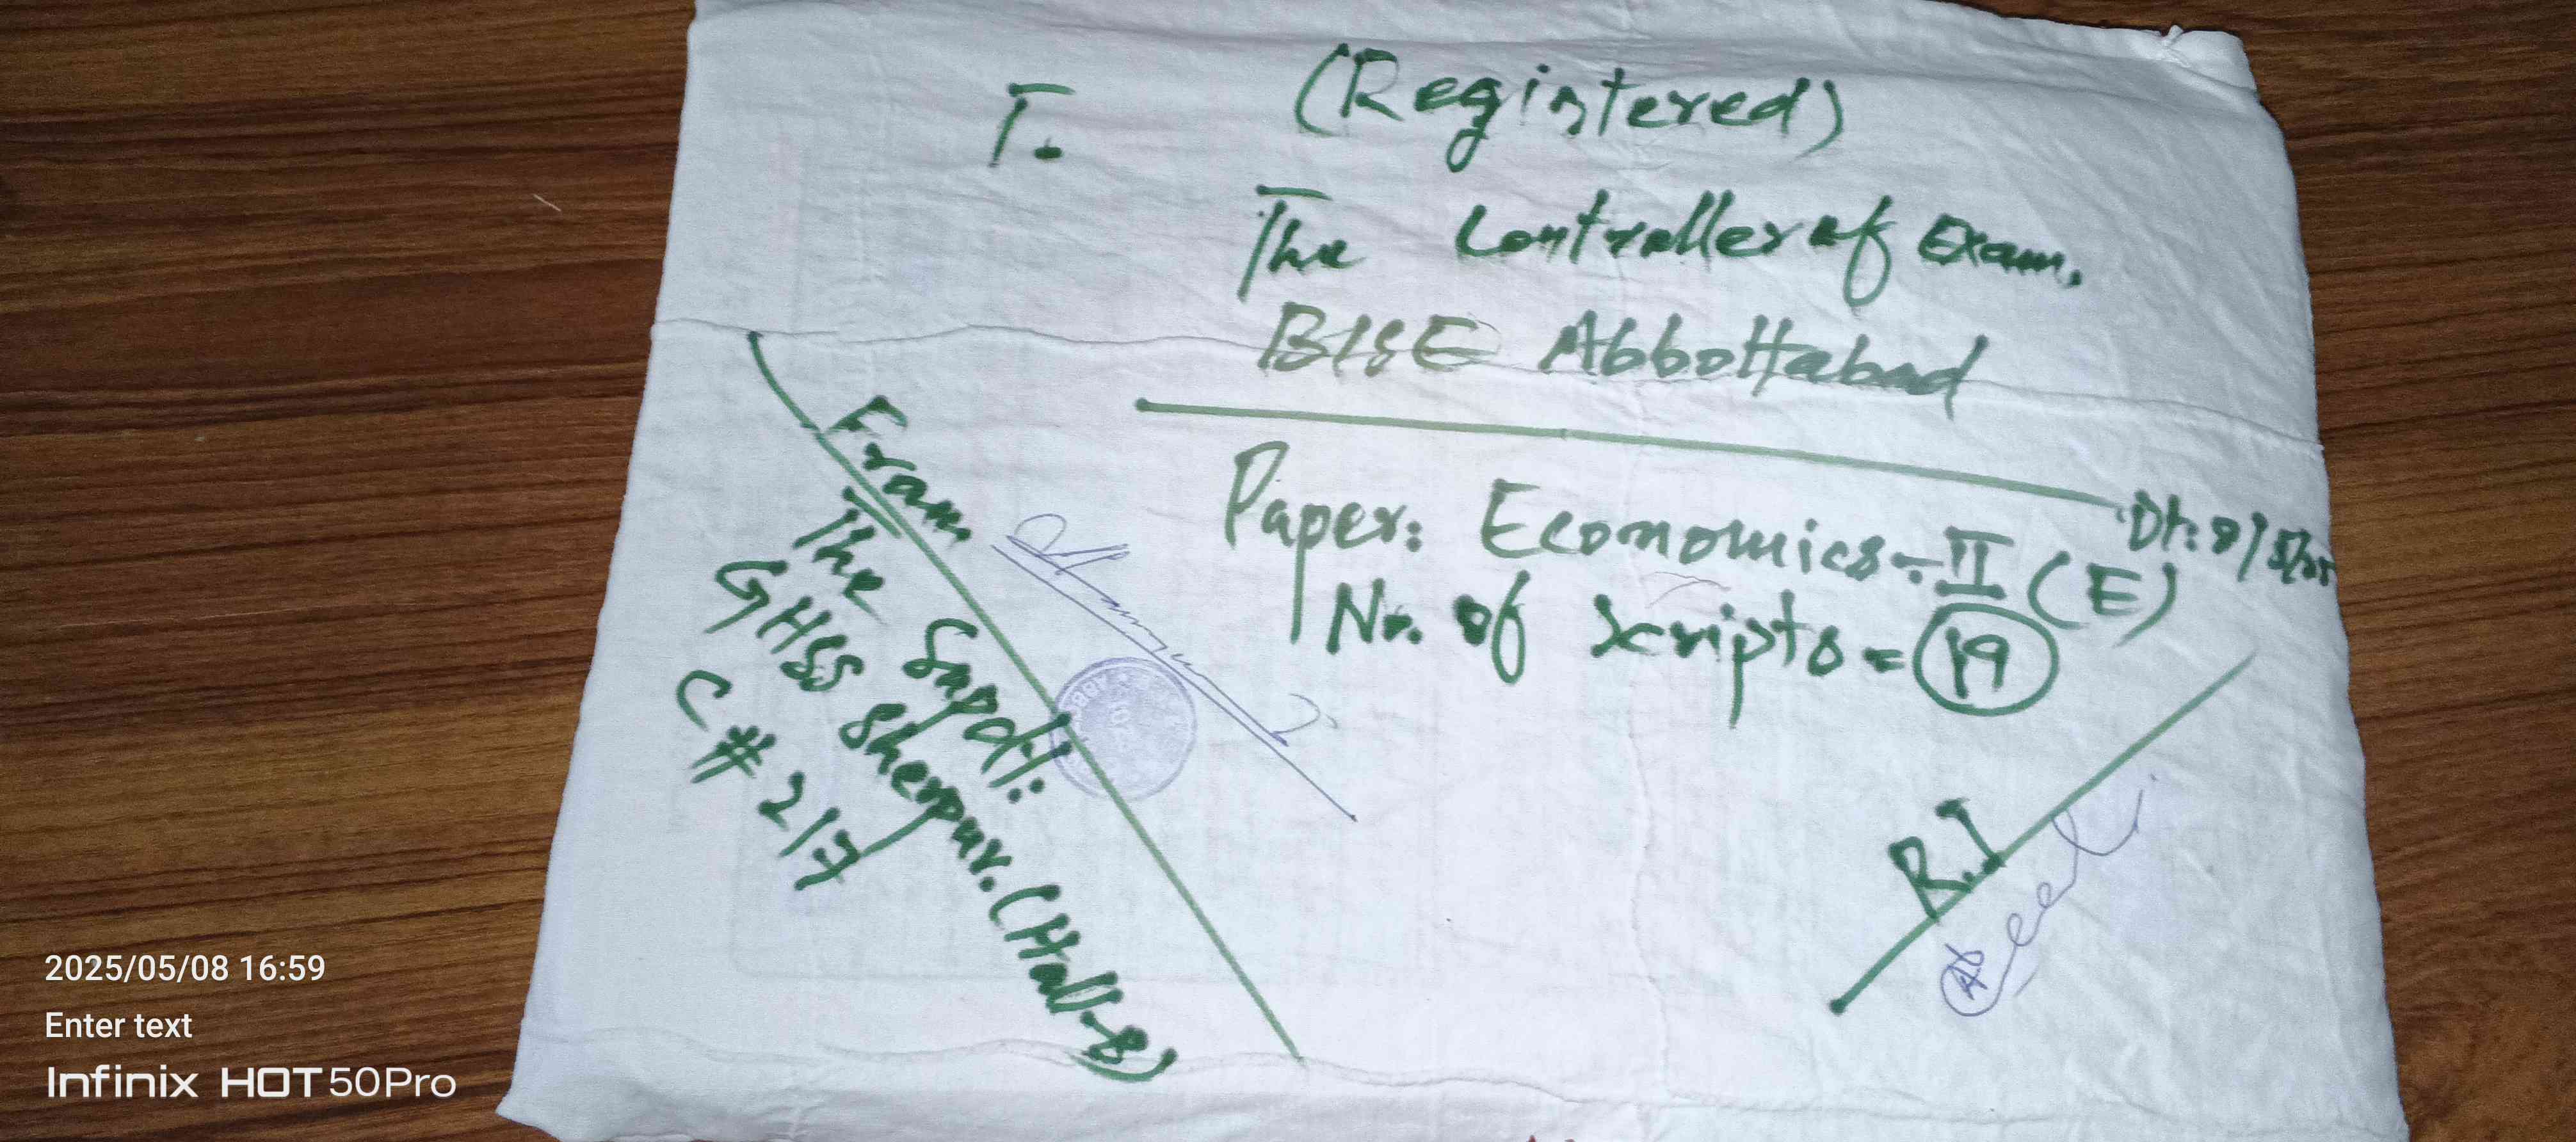 (Registered)
T.
The Controller of Exam.
BISE Abbottabad
Paper: Economics-II (E)
Dt: 8/5/25
No. of Scripts = 19
From
The Supdt:
GHSS Sherpur. (Hall-B)
C # 217
R.I
2025/05/08 16:59
Enter text
Infinix HOT 50Pro